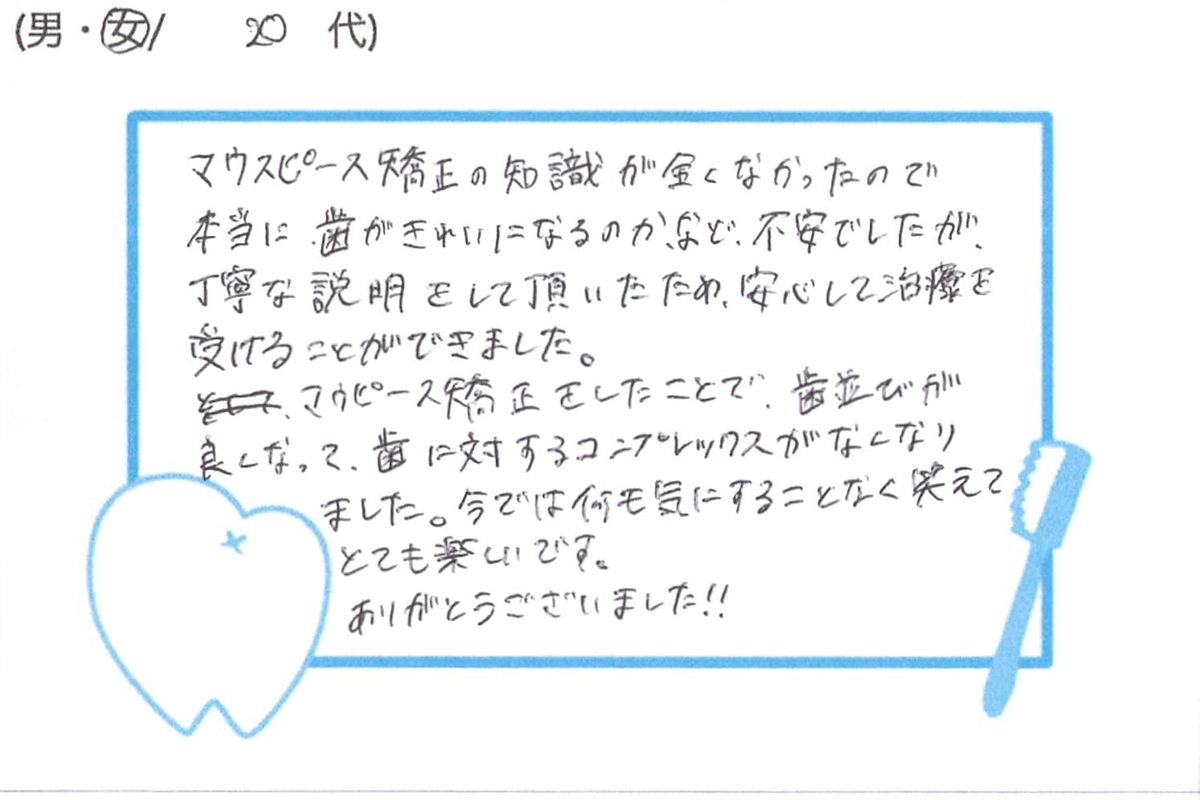 (男・女/ 20 代)
マウスピース矯正の知識が全くなかったので
本当に歯がきれいになるのか、など、不安でしたが、
丁寧な説明をして頂いたため、安心して治療を
受けることができました。
そして、マウピース矯正をしたことで、歯並びが
良くなって、歯に対するコンプレックスがなくなり
ました。今では何も気にすることなく笑えて
とても楽しいです。
ありがとうございました!!